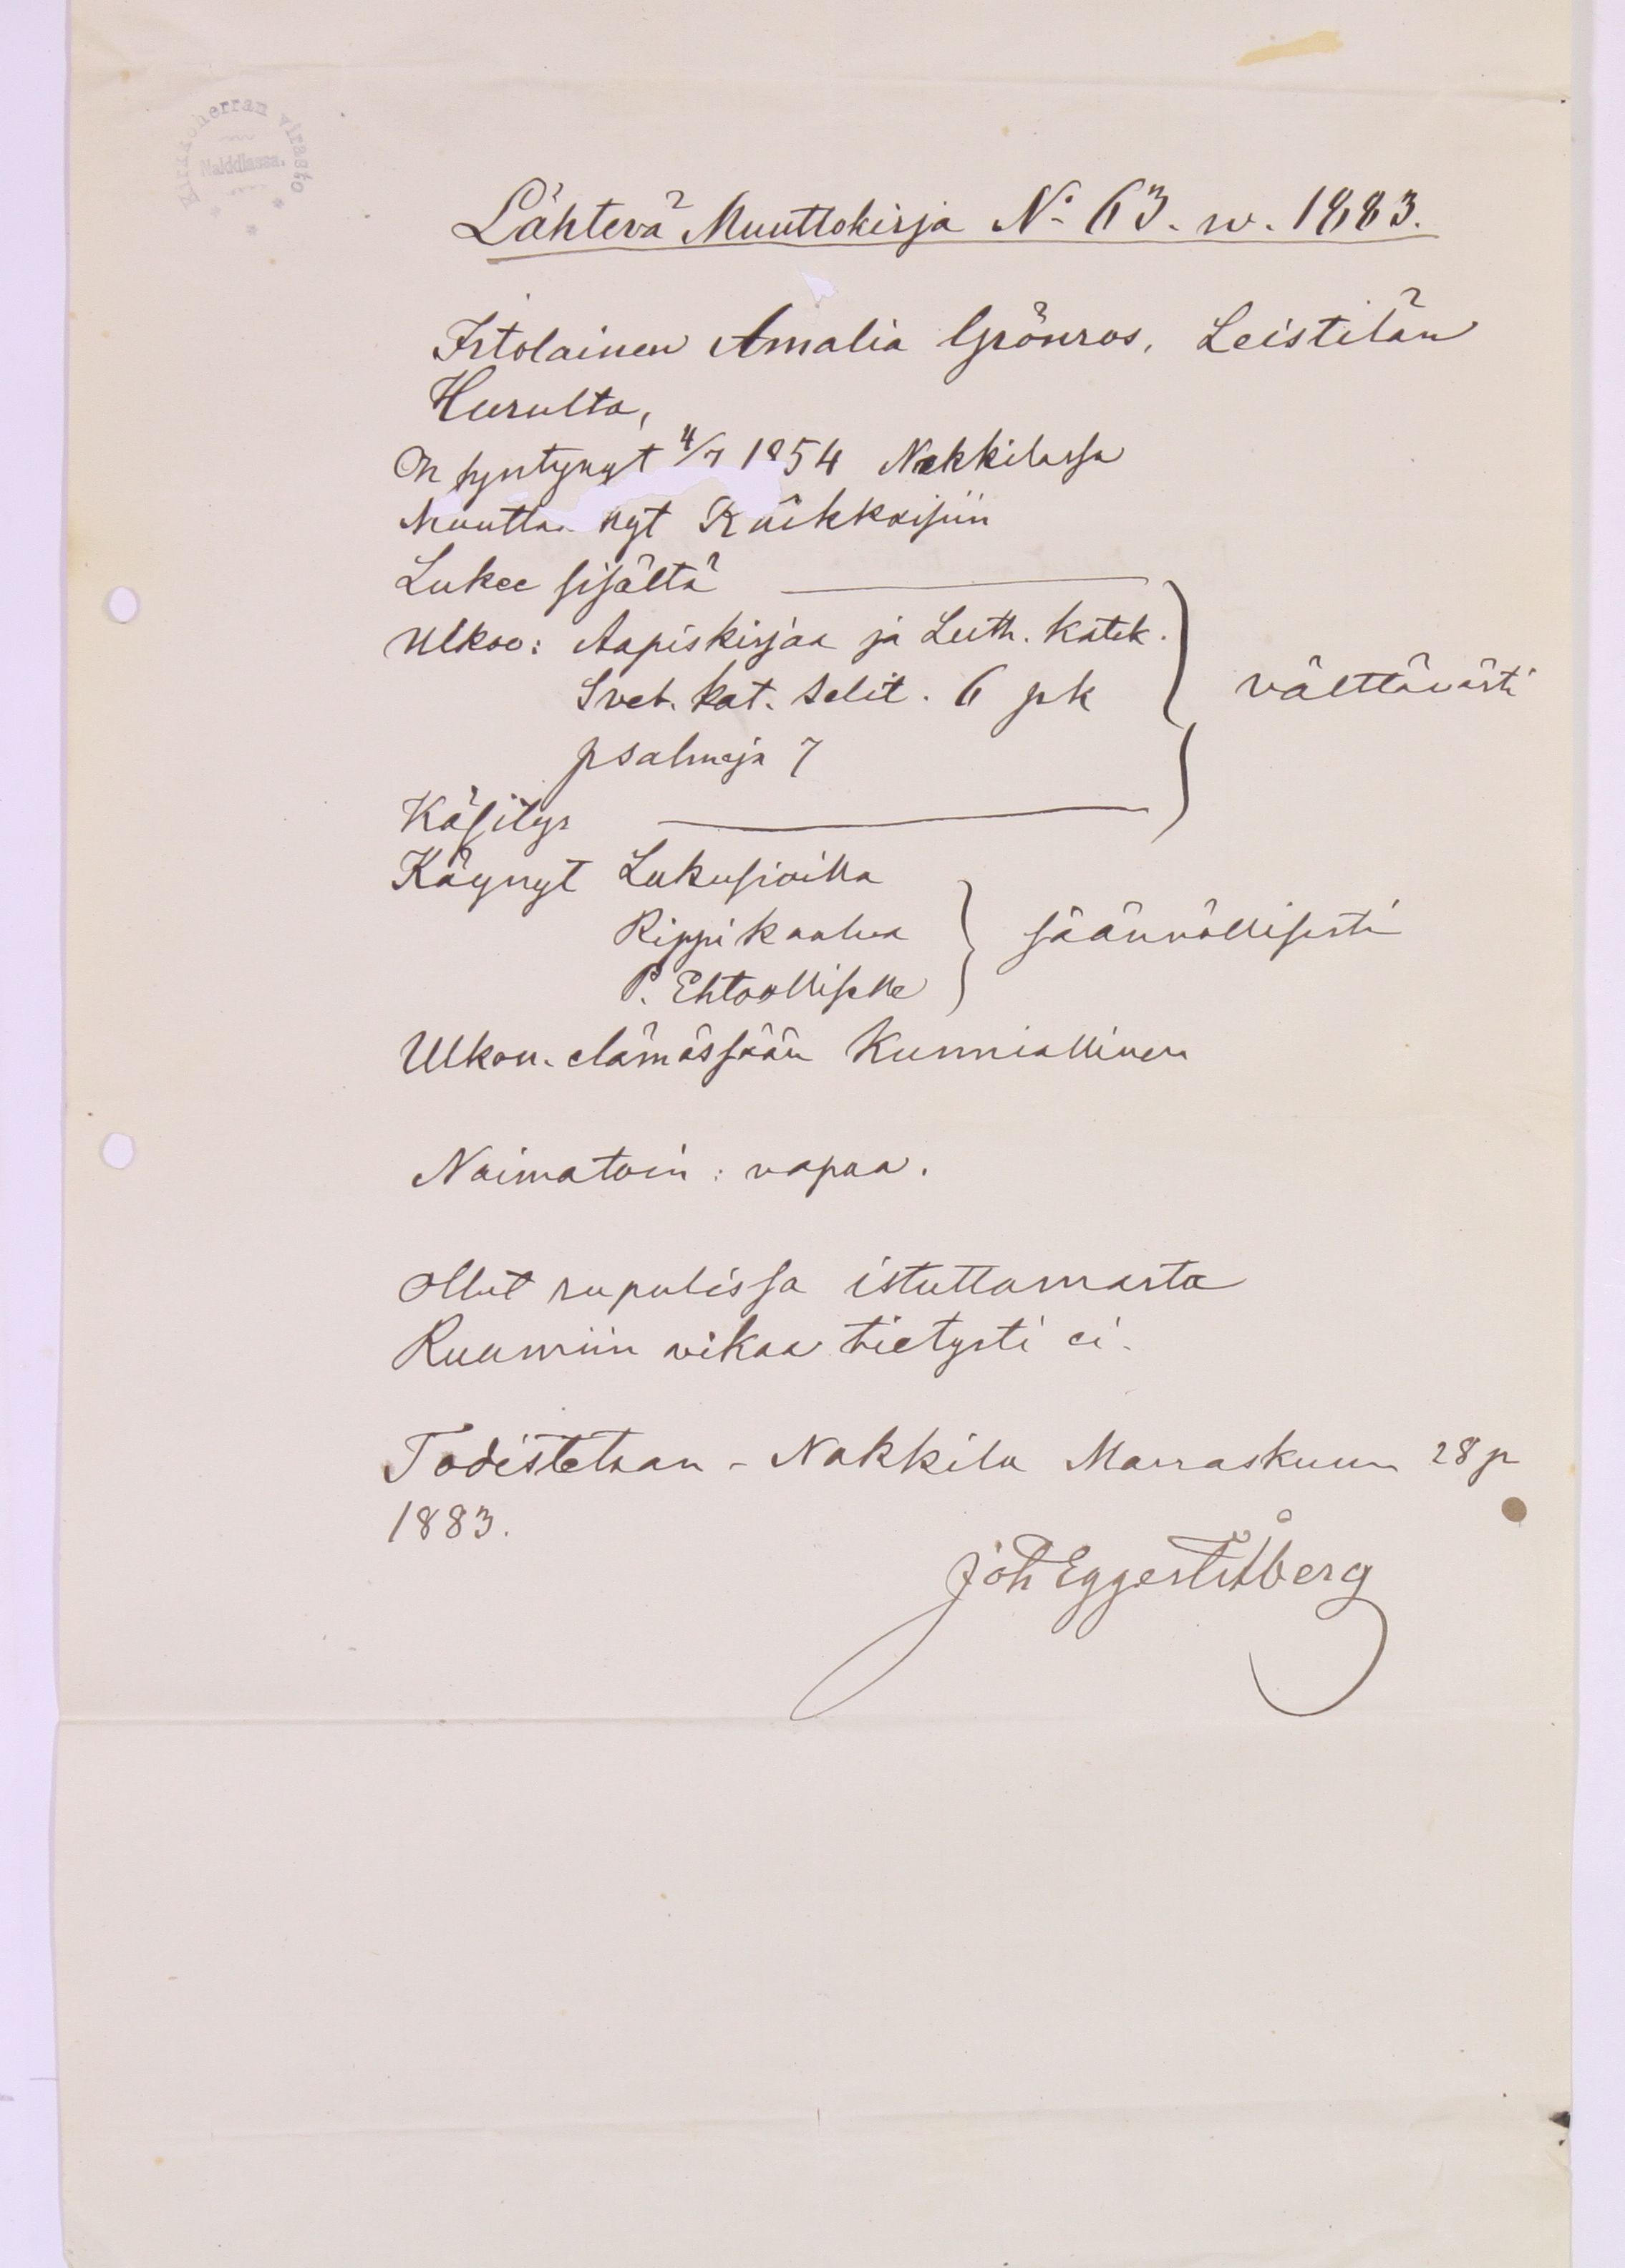 Kirkkoherran virasto
Nakkilassa.
Lähtevä Muuttokirja No 63. w. 1883.
Irtolainen Amalia Grönros, Leistilän
Hurulta,
On syntynyt 4/7 1854 Nakkilassa
Muuttaa nyt
Lukee sisältä
Ulkoo: Aapiskirjaa ja Luth. katek.
Sveb. kat. selit. 6 pk
psalmeja 7
välttävästi
Käsitys
Käynyt Lukusioilla
Rippikoulua
P. Ehtoollisella
säännöllisesti
Ulkon. elämässään Kunniallinen
Naimatoin: vapaa.
Ollut rupulissa istuttamasta
Ruumiin vikaa tietysti ei.
Todistetaan - Nakkila Marraskuun 28 p
1883.
Joh Eggert Åberg